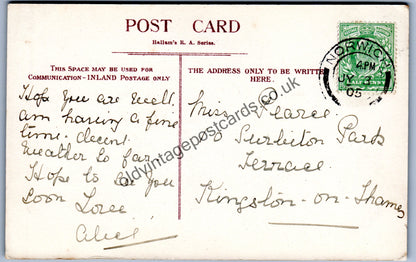 POST CARD
Hallam's R. A. Series.
THIS SPACE MAY BE USED FOR
COMMUNICATION - INLAND POSTAGE ONLY
THE ADDRESS ONLY TO BE WRITTEN
HERE.
NORWICH
4. PM
JY 3
05
HALF PENNY
Hope you are well.
am having a fine
time. decent
weather so far
Hope to see you
soon Love
Alice
Miss Pearce
Surbiton Park
Terrace
Kingston-on-Thames
oldvintagepostcards.co.uk